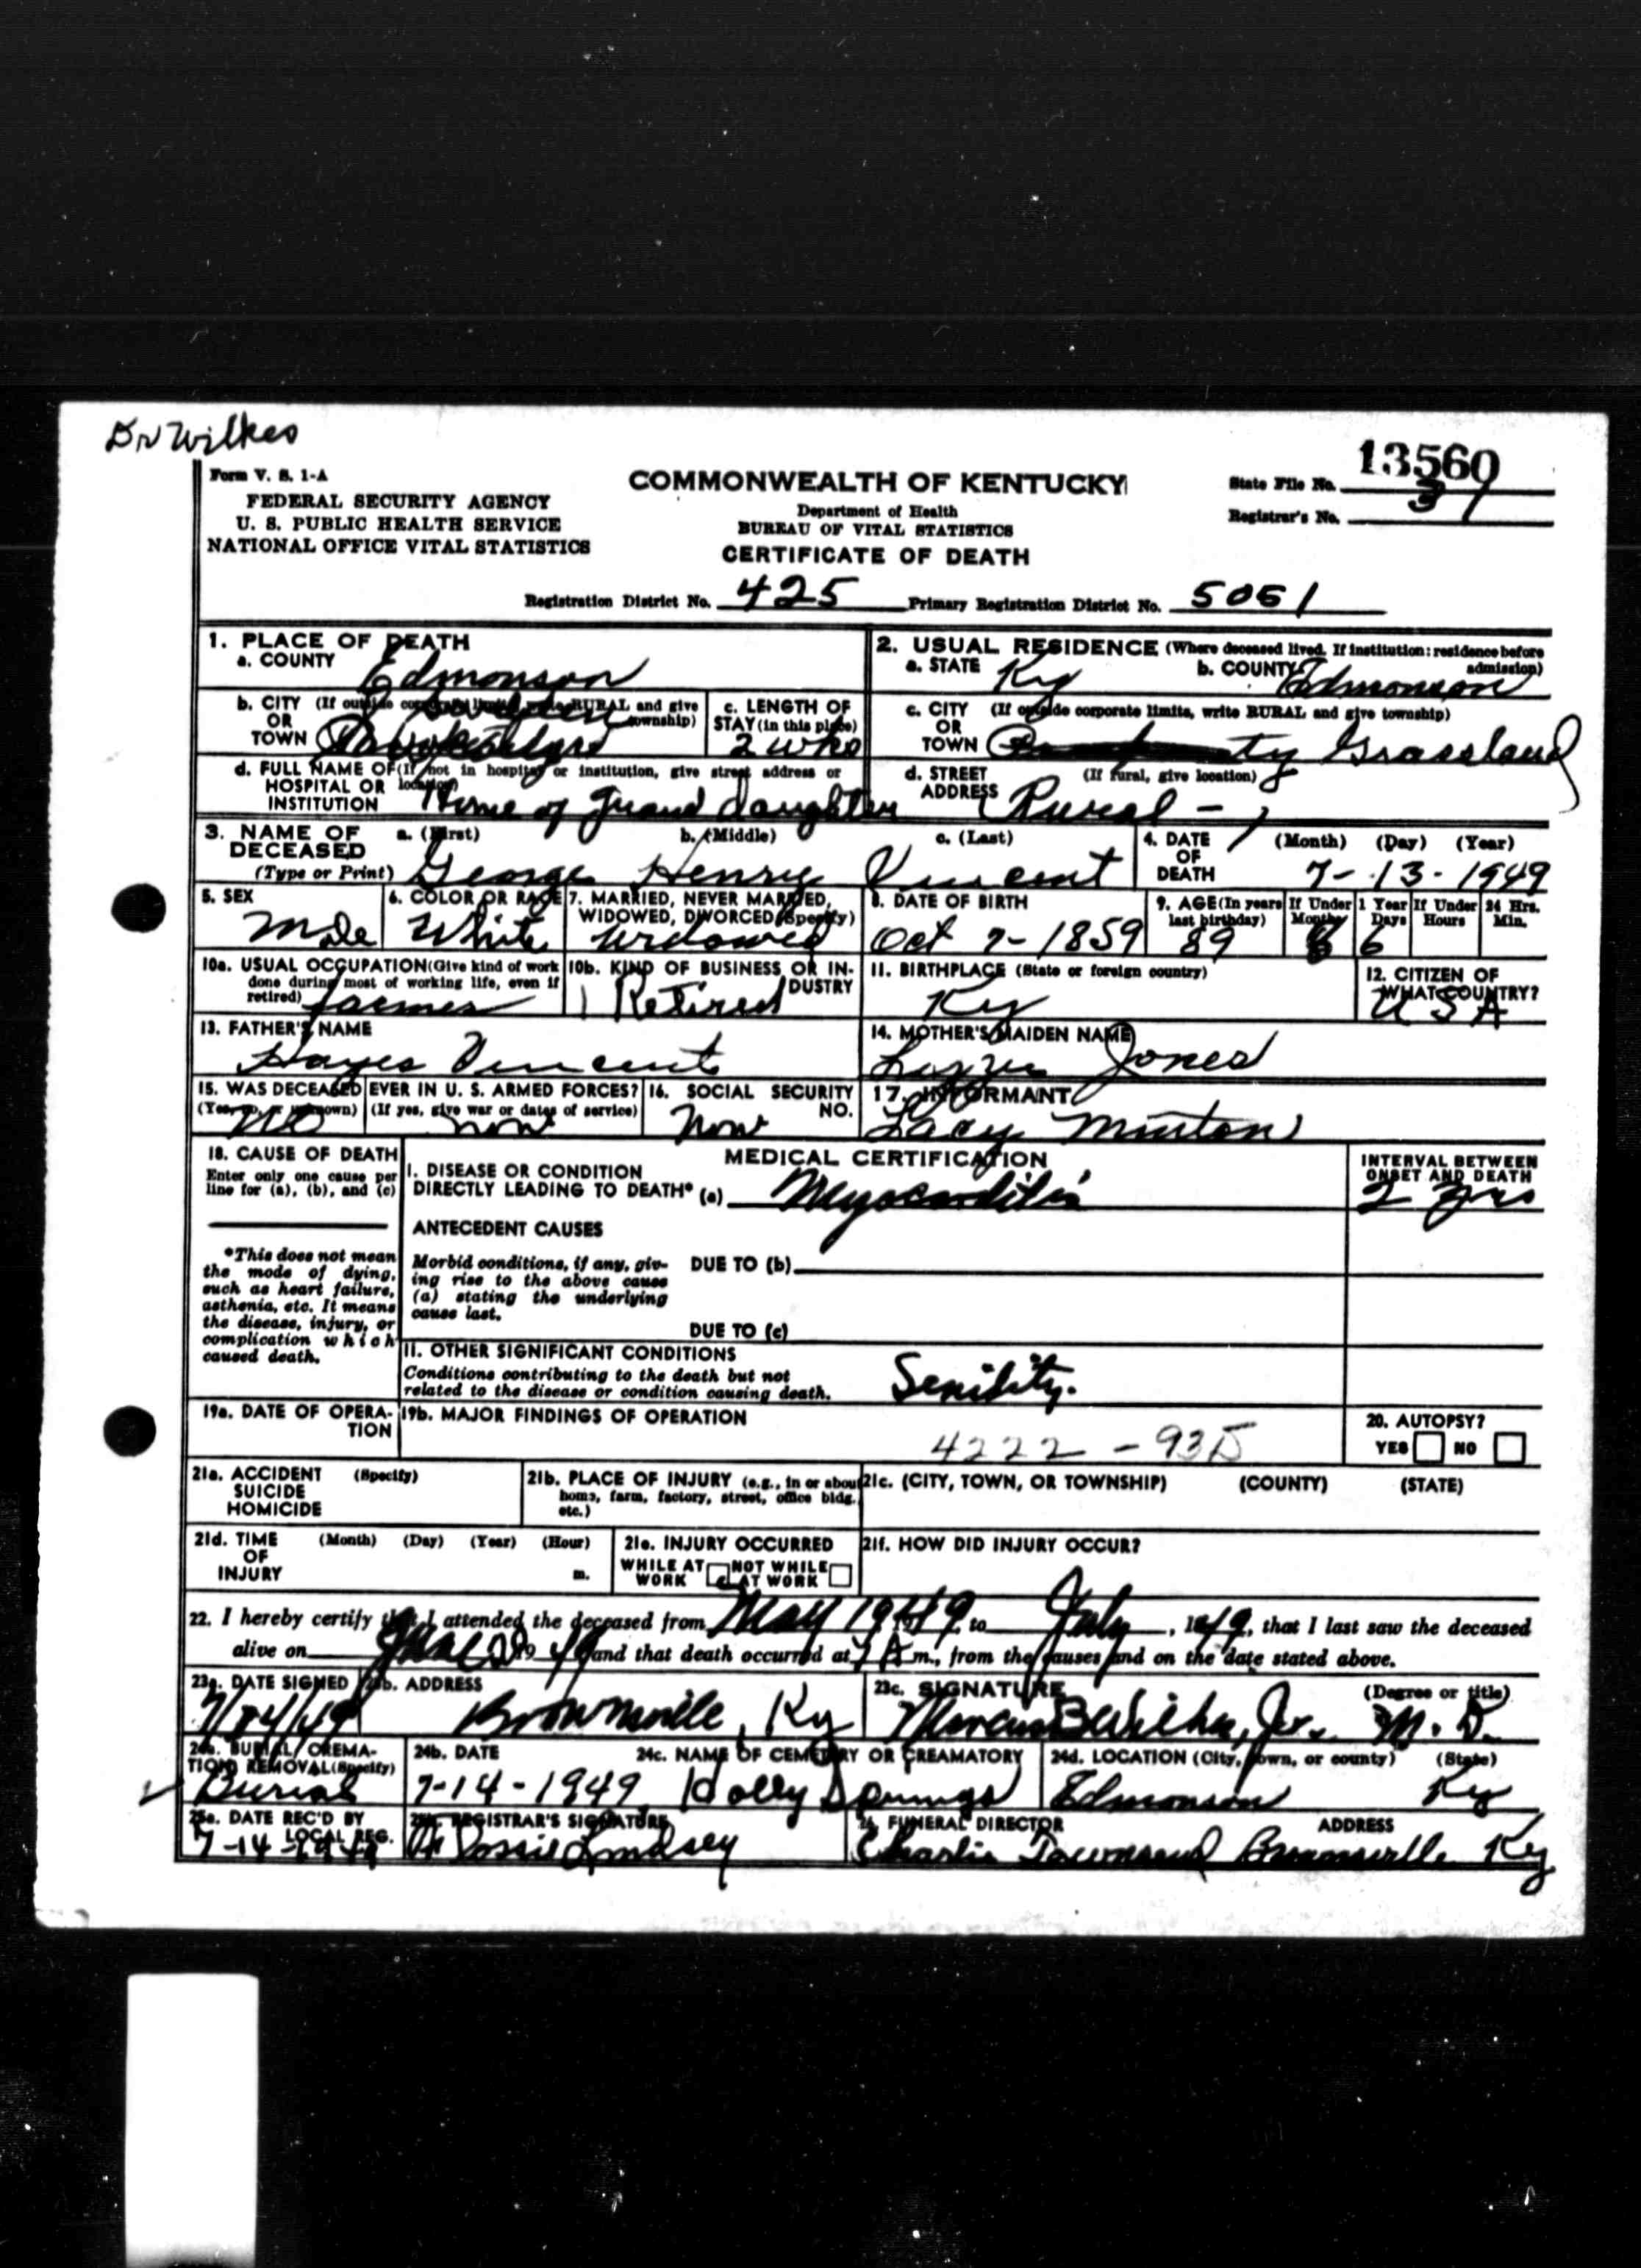 Dr Wilkes
13560
Form V. S. 1-A
FEDERAL SECURITY AGENCY
U. S. PUBLIC HEALTH SERVICE
NATIONAL OFFICE VITAL STATISTICS
COMMONWEALTH OF KENTUCKY
Department of Health
BUREAU OF VITAL STATISTICS
CERTIFICATE OF DEATH
State File No.
Registrar's No. 31
Registration District No. 425 Primary Registration District No. 5051
1. PLACE OF DEATH
a. COUNTY Edmonson
2. USUAL RESIDENCE (Where deceased lived. If institution: residence before admission)
a. STATE Ky b. COUNTY Edmonson
b. CITY (If outside corporate limits, write RURAL and give township)
OR
TOWN
c. LENGTH OF
STAY (in this place)
2 wks
c. CITY (If outside corporate limits, write RURAL and give township)
OR
TOWN Grassland
d. FULL NAME OF (If not in hospital or institution, give street address or location)
HOSPITAL OR
INSTITUTION Home of Grand daughter
d. STREET (If rural, give location)
ADDRESS Rural -
3. NAME OF
DECEASED
(Type or Print)
a. (First) b. (Middle) c. (Last)
George Henry Vincent
4. DATE
OF
DEATH
(Month) (Day) (Year)
7-13-1949
5. SEX
Male
6. COLOR OR RACE
White
7. MARRIED, NEVER MARRIED,
WIDOWED, DIVORCED (Specify)
Widowed
8. DATE OF BIRTH
Oct 7-1859
9. AGE (In years last birthday)
89
If Under 1 Year
Months Days
6
If Under 24 Hrs.
Hours Min.
10a. USUAL OCCUPATION (Give kind of work done during most of working life, even if retired)
farmer
10b. KIND OF BUSINESS OR INDUSTRY
Retired
11. BIRTHPLACE (State or foreign country)
Ky
12. CITIZEN OF
WHAT COUNTRY?
USA
13. FATHER'S NAME
Hayes Vincent
14. MOTHER'S MAIDEN NAME
Lizzie Jones
15. WAS DECEASED EVER IN U. S. ARMED FORCES?
(Yes, no, or unknown) (If yes, give war or dates of service)
No
16. SOCIAL SECURITY
NO.
17. INFORMANT
Lacy Minton
18. CAUSE OF DEATH
Enter only one cause per
line for (a), (b), and (c)
*This does not mean
the mode of dying,
such as heart failure,
asthenia, etc. It means
the disease, injury, or
complication which
caused death.
MEDICAL CERTIFICATION
I. DISEASE OR CONDITION
DIRECTLY LEADING TO DEATH* (a) Myocarditis
INTERVAL BETWEEN
ONSET AND DEATH
2 yrs
ANTECEDENT CAUSES
Morbid conditions, if any, giv-
ing rise to the above cause
(a) stating the underlying
cause last.
DUE TO (b)
DUE TO (c)
II. OTHER SIGNIFICANT CONDITIONS
Conditions contributing to the death but not
related to the disease or condition causing death.
Senility.
19a. DATE OF OPERA-
TION
19b. MAJOR FINDINGS OF OPERATION
4222 - 93D
20. AUTOPSY?
YES NO
21a. ACCIDENT (Specify)
SUICIDE
HOMICIDE
21b. PLACE OF INJURY (e.g., in or about
home, farm, factory, street, office bldg.
etc.)
21c. (CITY, TOWN, OR TOWNSHIP) (COUNTY) (STATE)
21d. TIME (Month) (Day) (Year) (Hour)
OF
INJURY m.
21e. INJURY OCCURRED
WHILE AT NOT WHILE
WORK AT WORK
21f. HOW DID INJURY OCCUR?
22. I hereby certify that I attended the deceased from May 1949, to July, 1949, that I last saw the deceased
alive on June 1949 and that death occurred at 7 A m., from the causes and on the date stated above.
23a. DATE SIGNED
23b. ADDRESS
Brownsville, Ky
23c. SIGNATURE (Degree or title)
Marcus B Wilkes, Jr. M. D.
24a. BURIAL, CREMA-
TION, REMOVAL (Specify)
Burial
24b. DATE
7-14-1949
24c. NAME OF CEMETERY OR CREAMATORY
Holly Springs
24d. LOCATION (City, town, or county) (State)
Edmonson Ky
25a. DATE REC'D BY
LOCAL REG.
7-14-1949
25b. REGISTRAR'S SIGNATURE
Dossie Lindsey
26. FUNERAL DIRECTOR ADDRESS
Charlie Townsend Brownsville Ky